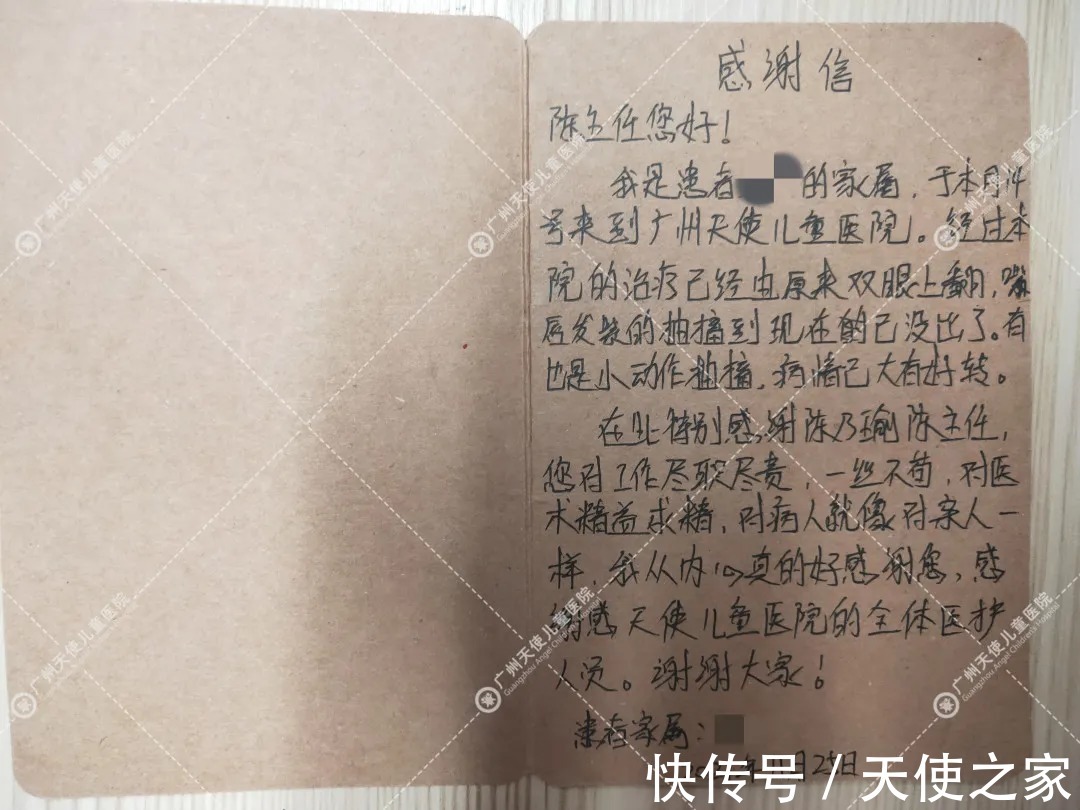 感谢信
陈主任您好！
我是患者 的家属，于本月14
号来到广州天使儿童医院。经过本
院的治疗已经由原来双眼上翻，嘴
唇发紫的抽搐到现在的已没出了。有
也是小动作抽搐，病情已大有好转。
在此特别感谢陈乃瑜陈主任，
您对工作尽职尽责，一丝不苟，对医
术精益求精，对病人就像对亲人一
样，我从内心真的好感谢您，感
谢感天使儿童医院的全体医护
人员。谢谢大家！
患者家属：
月25日
快传号 / 天使之家
广州天使儿童医院
Guangzhou Angel Children's Hospital
广州天使儿童医院
Guangzhou Angel Children's Hospital
广州天使儿童医院
Guangzhou Angel Children's Hospital
广州天使儿童医院
Guangzhou Angel Children's Hospital